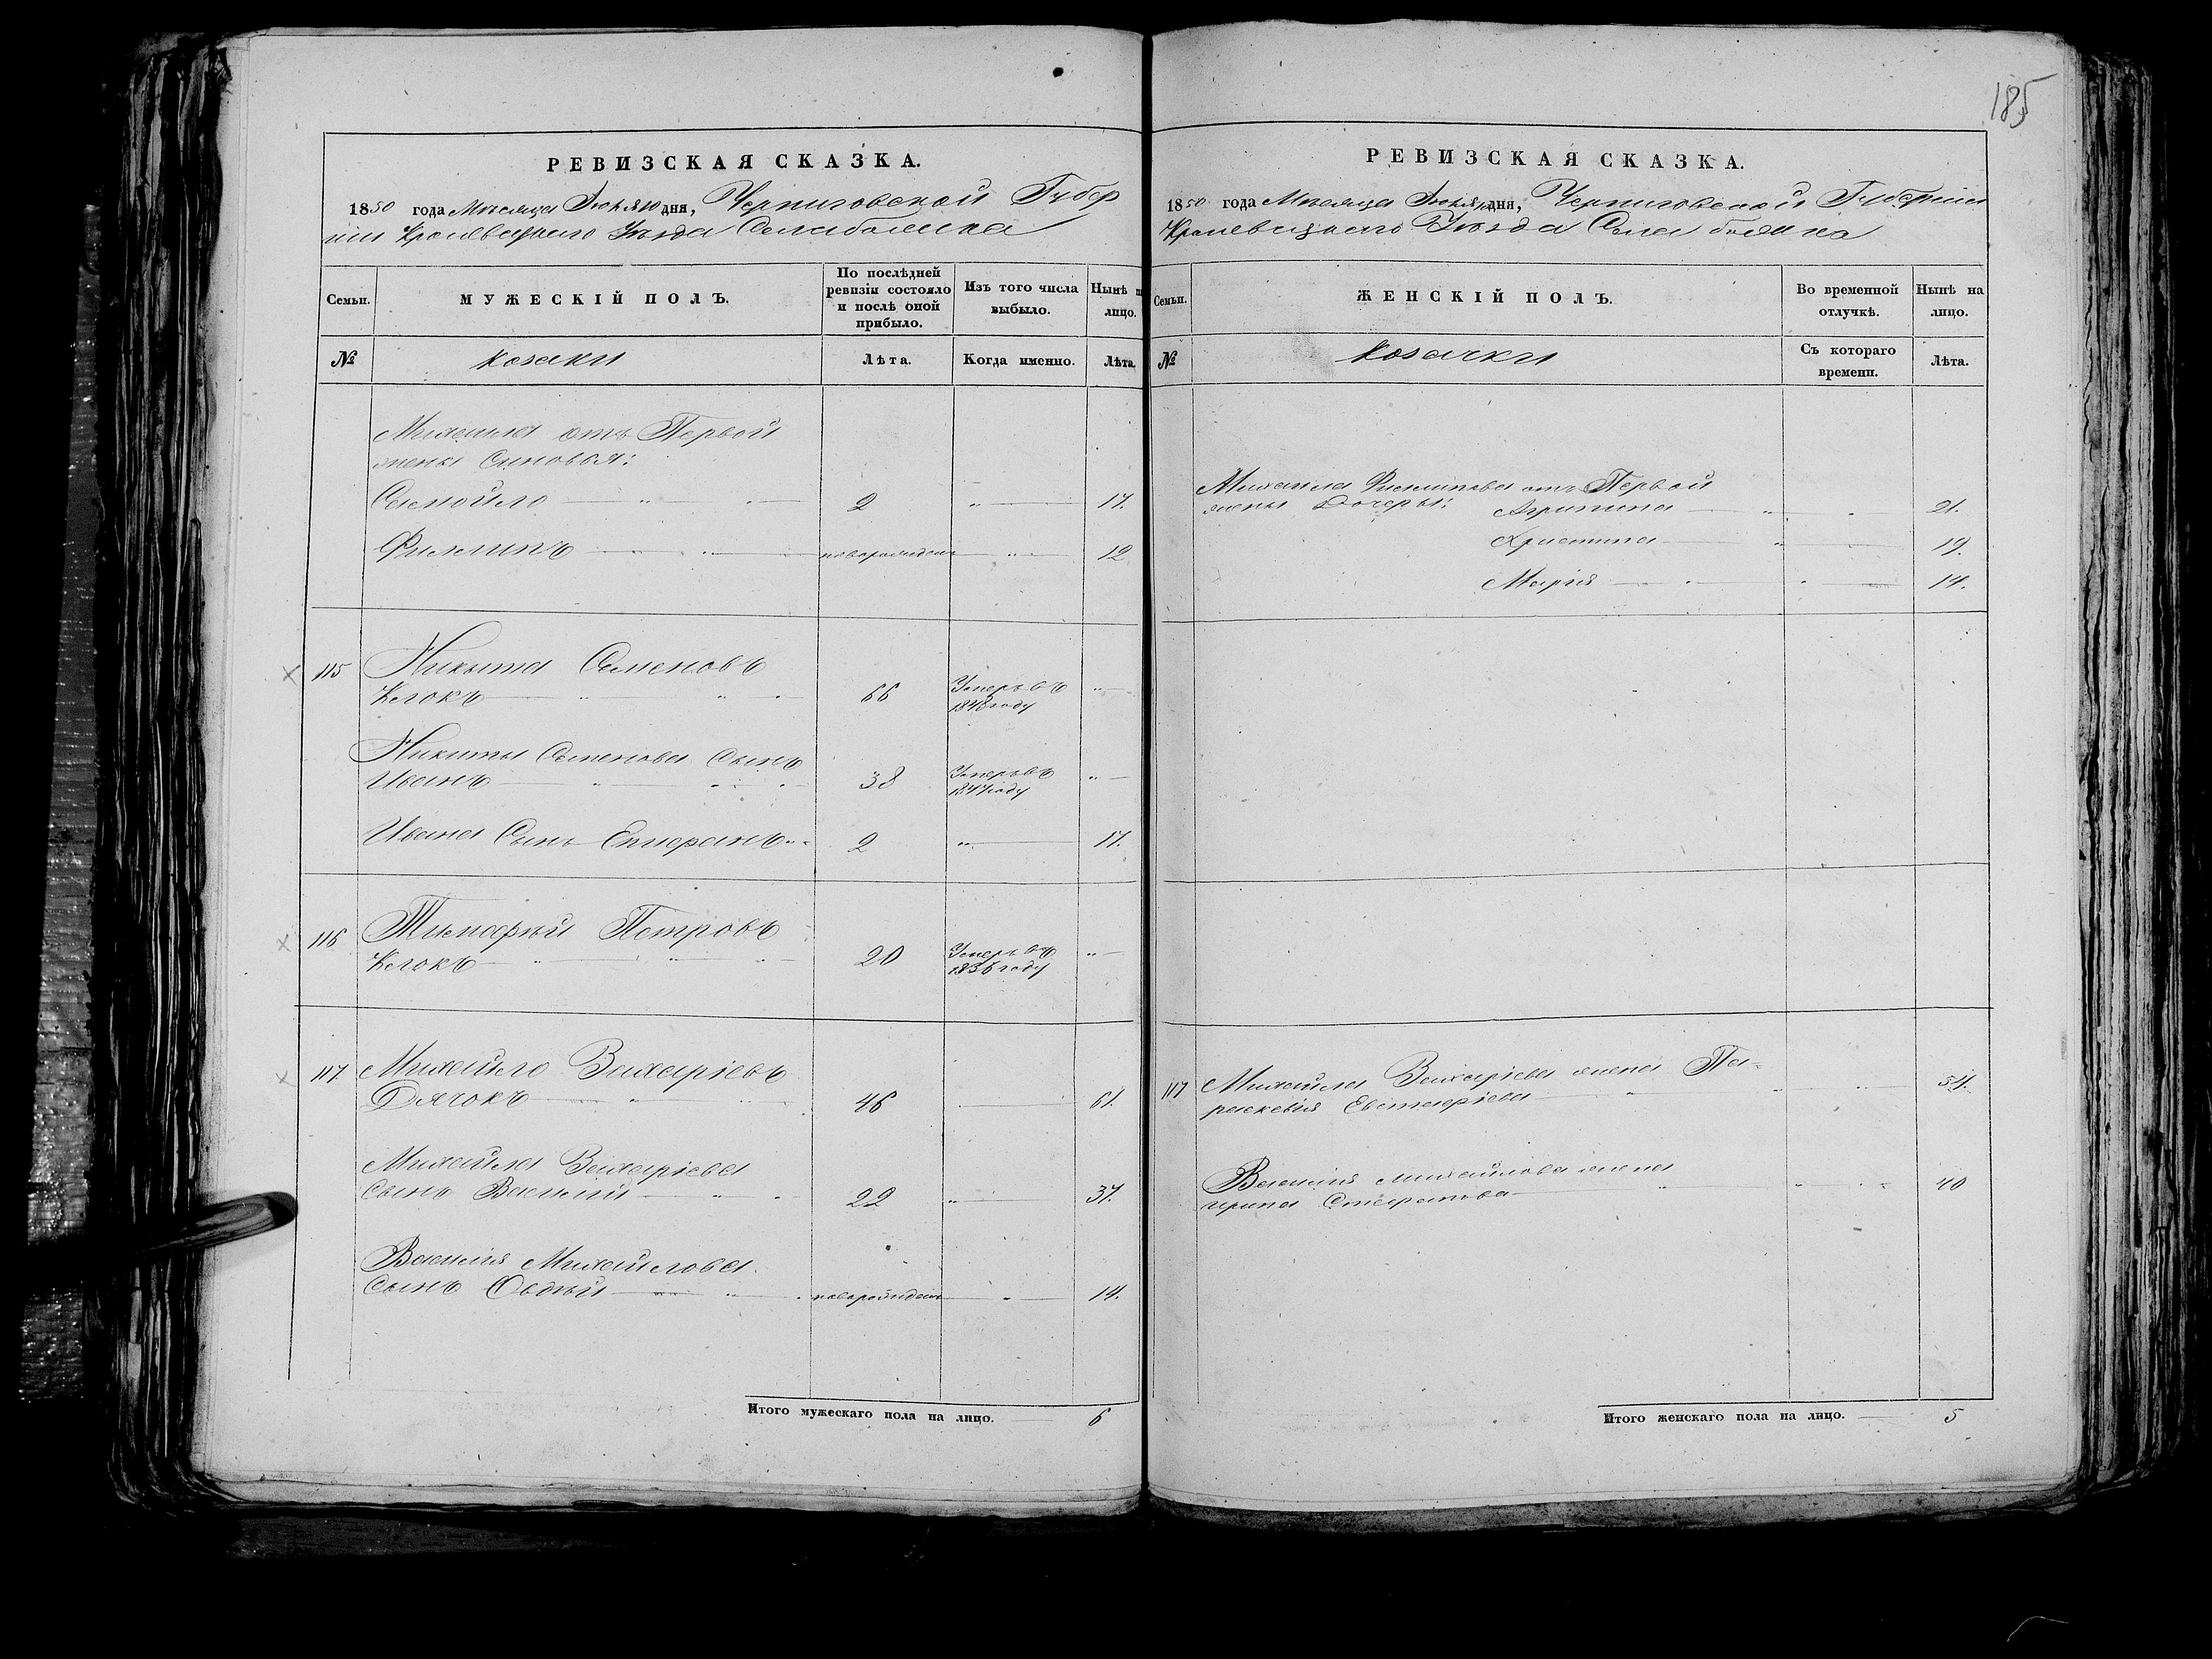 185
РЕВИЗСКАЯ СКАЗКА.
1850 года Месяца Июля 10 дня, Черниговской Губер
ніи Кролевецкаго Уезда Села
Семьи.
МУЖЕСКІЙ ПОЛЪ.
По послѣдней
ревизіи состояло
и послѣ оной
прибыло.
Изъ того числа
выбыло.
Нынѣ н
лицо.
№
козаки
Лѣта.
Когда именно.
Лѣта.
Михаила отъ Первой
жены Синовья:
Самойло 2 17.
Филипъ новорожденъ 12
115 Никита Семеновъ
Клокъ 66 Умеръ въ
году
Никиты Семенова Сынъ
Иванъ 38 Умеръ въ
1847 году
Ивана Сынъ 2 17.
116 Тимофей Петровъ
Клокъ 20 Умеръ въ
1836 году
117. Михайло Захаріевъ
Дячокъ 46 61.
Михайла Захаріева
Сынъ Василий 22 37.
Василия Михайлова
Сынъ новорожденъ 14.
Итого мужескаго пола на лицо. 6
РЕВИЗСКАЯ СКАЗКА.
1850 года Месяца Июля дня, Черниговской Губерніи
Кролевецкаго Уезда Села
Семьи.
ЖЕНСКІЙ ПОЛЪ.
Во временной
отлучкѣ.
Нынѣ на
лицо.
№
козачки
Съ котораго
времени.
Лѣта.
Михаила Филипова отъ Первой
жены Дочеры: Агрипина 21.
Христина 19.
Марія 14.
117 Михайла Захаріева жена Па-
раскевія Евстафіева 54.
Василія Михайлова жена
ирина 40
Итого женскаго пола на лицо. 5